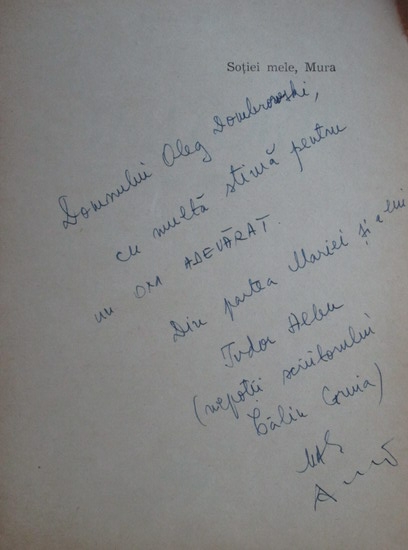 Soției mele, Mura
Domnului Oleg Dombrowski,
cu multă stimă pentru
un OM ADEVĂRAT.
Din partea Mariei și a lui
Tudor Albu
(nepoții scriitorului
Călin Gruia)